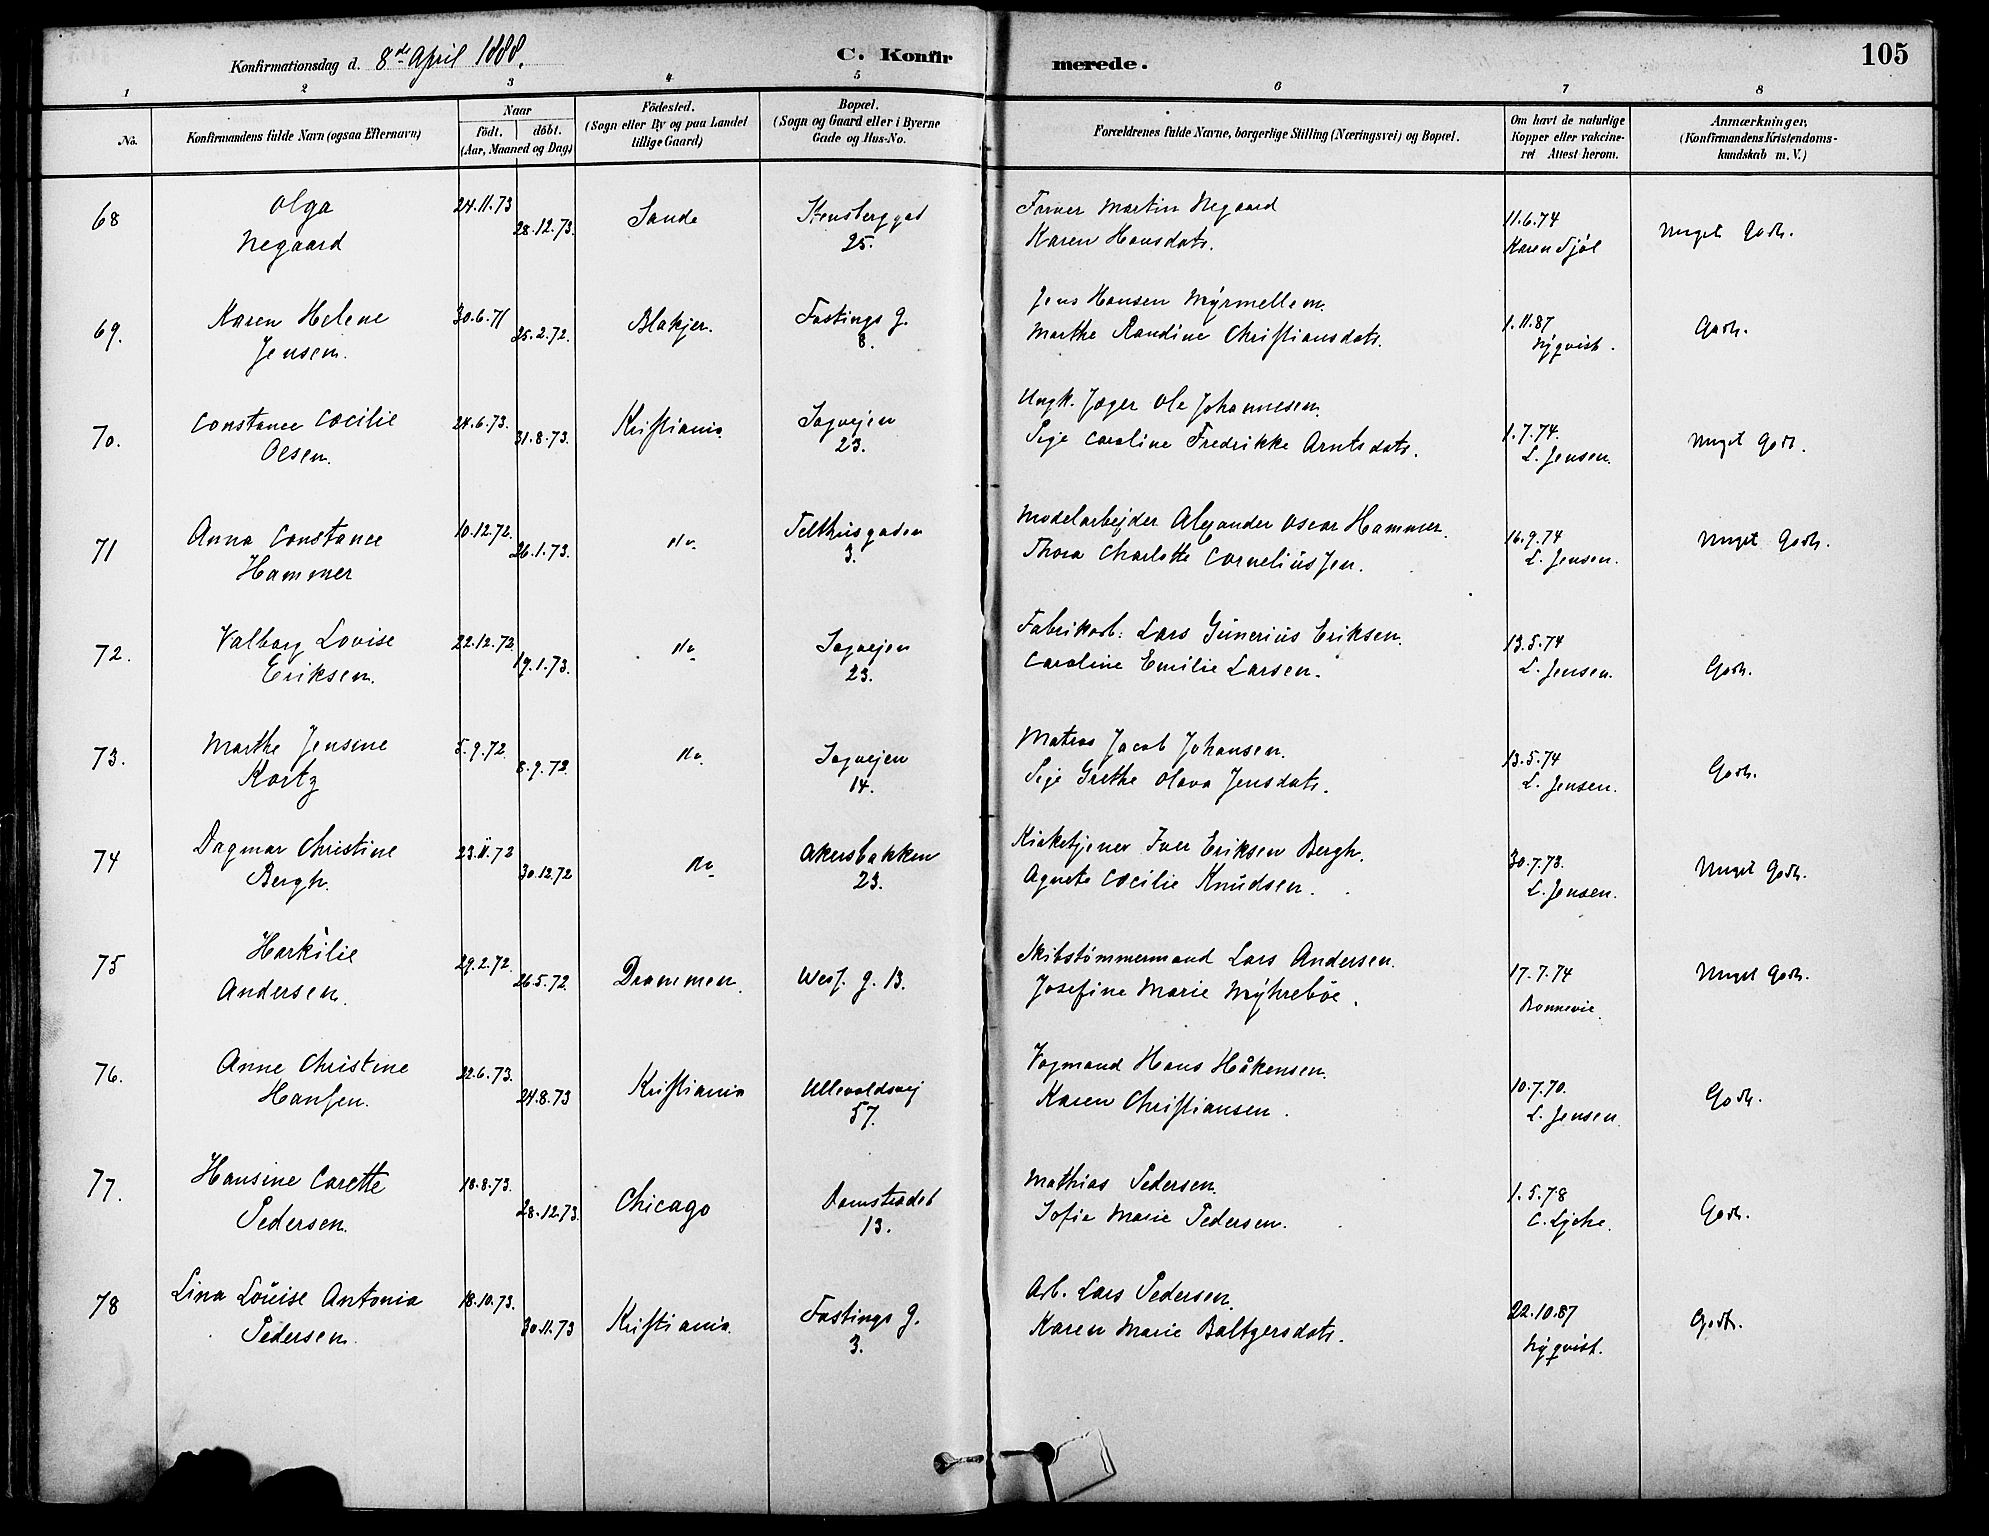 Konfirmationsdag d. 8de April 1888. C. Konfirmerede. 105
1 2 3 4 5 6 7 8
No. Konfirmandens fulde Navn (ogsaa Efternavn) Naar født. døbt. (Aar, Maaned og Dag) Födested. (Sogn eller By og paa Landet tillige Gaard) Bopæl. (Sogn og Gaard eller i Byerne Gade og Hus-No. Forældrenes fulde Navne, borgerlige Stilling (Næringsvei) og Bopæl. Om havt de naturlige Kopper eller vakcineret Attest herom. Anmærkninger, (Konfirmandens Kristendomskundskab m. V.)
68 Olga 24.11.73 Sande Stensberggad Martin Negaard 11.6.74 Meget Godt.
Negaard 28.12.73. 25. Karen Hansdatr. Karen
69. Karen Helene 30.6.71 Blakjer. Fastings g. Jens Hansen Myrmellem. 1.11.87 Godt.
Jensen. 25.2.72. 8. Marthe Randine Christiansdatr. Nyqvist.
70. Constance Cæcilie 24.6.73. Kristiania. Sagvejen Ungk. Jæger Ole Johannesen. 1.7.74. Meget Godt.
Olsen. 31.8.73. 23. Pige Caroline Fredrikke Arntsdatr. L. Jensen.
71 Anna Constance 10.12.72. do. Telthusgaden Modelarbejder Alexander Oscar Hammer. 16.9.74 Meget Godt.
Hammer 26.1.73. 3. Thora Charlotte Corneliusen. L. Jensen.
72. Valborg Lovise 22.12.72. do. Sagvejen Fabrikarb: Lars Gunerius Eriksen. 13.5.74
Eriksen. 19.1.73. 23. Caroline Emilie Larsen. L. Jensen. Godt.
73. Marthe Jensine 5.9.72. do. Sagvejen Matros Jacob Johansen. 13.5.74 Godt.
Kortz 8.9.72. 14. Pige Grethe Olava Jensdatr. L. Jensen.
74 Dagmar Christine 23.11.72 do. Akersbakken Kirketjener Iver Eriksen Bergh. 30.7.73. Meget Godt.
Bergh. 30.12.72 23. Agnete Cæcilie Knudsen. L. Jensen.
75 29.2.72. Drammen. g. 13. Skibstømmermand Lars Andersen. 17.7.74 Meget Godt.
Andersen. 26.5.72. Josefine Marie Myhrebøe. Bonnevie.
76. Anne Christine 22.6.73. Kristiania Ullevoldsvej Vogmand Hans Håkensen. 10.7.70. Godt.
Hansen. 24.8.73 57. Karen Christiansen. L. Jensen.
77. Hansine Carette 18.8.73. Chicago Damstredet Mathias Pedersen. 1.5.78 Godt.
Pedersen. 28.12.73. 13. Sofie Marie Pedersen. C. Lyche.
78 Lina Louise Antonia 18.10.73. Kristiania. Fastings g. Arb. Lars Pedersen. 22.10.87 Godt.
Pedersen. 30.11.73 3. Karen Marie Baltzersdatr. Nyqvist.